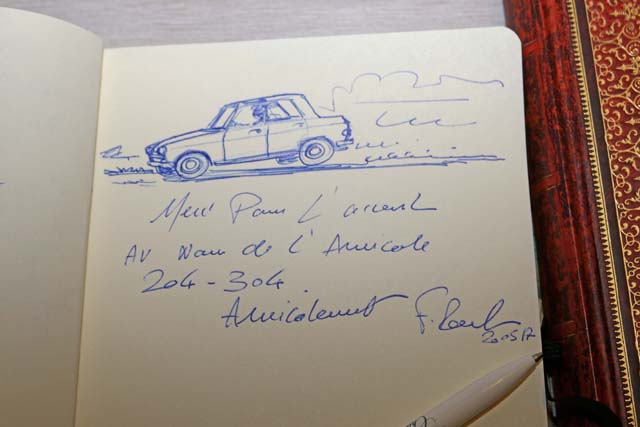 Merci Pour L'accueil
Au Nom de L'Amicale
204-304.
Amicalement
200517